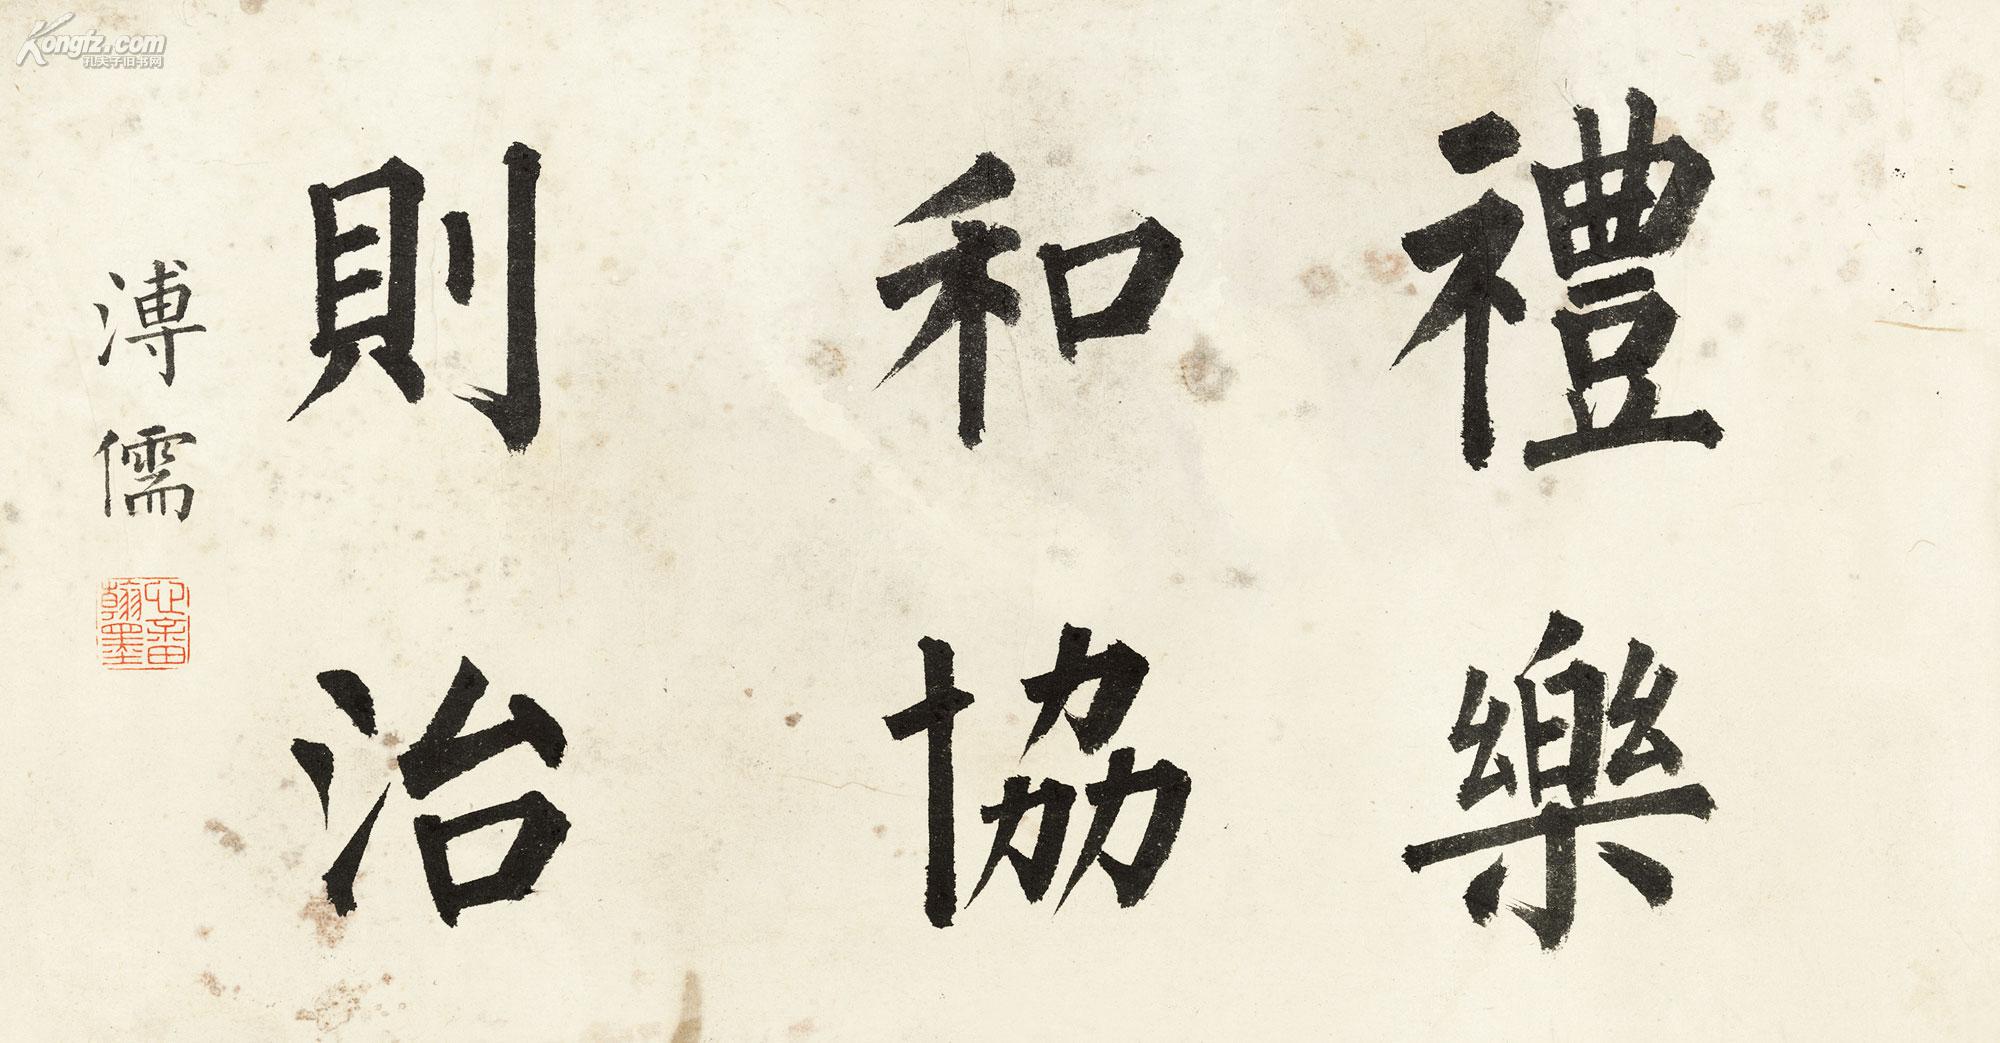 禮樂
和協
則治
溥儒
心畬
翰墨
Kongfz.com
孔夫子旧书网